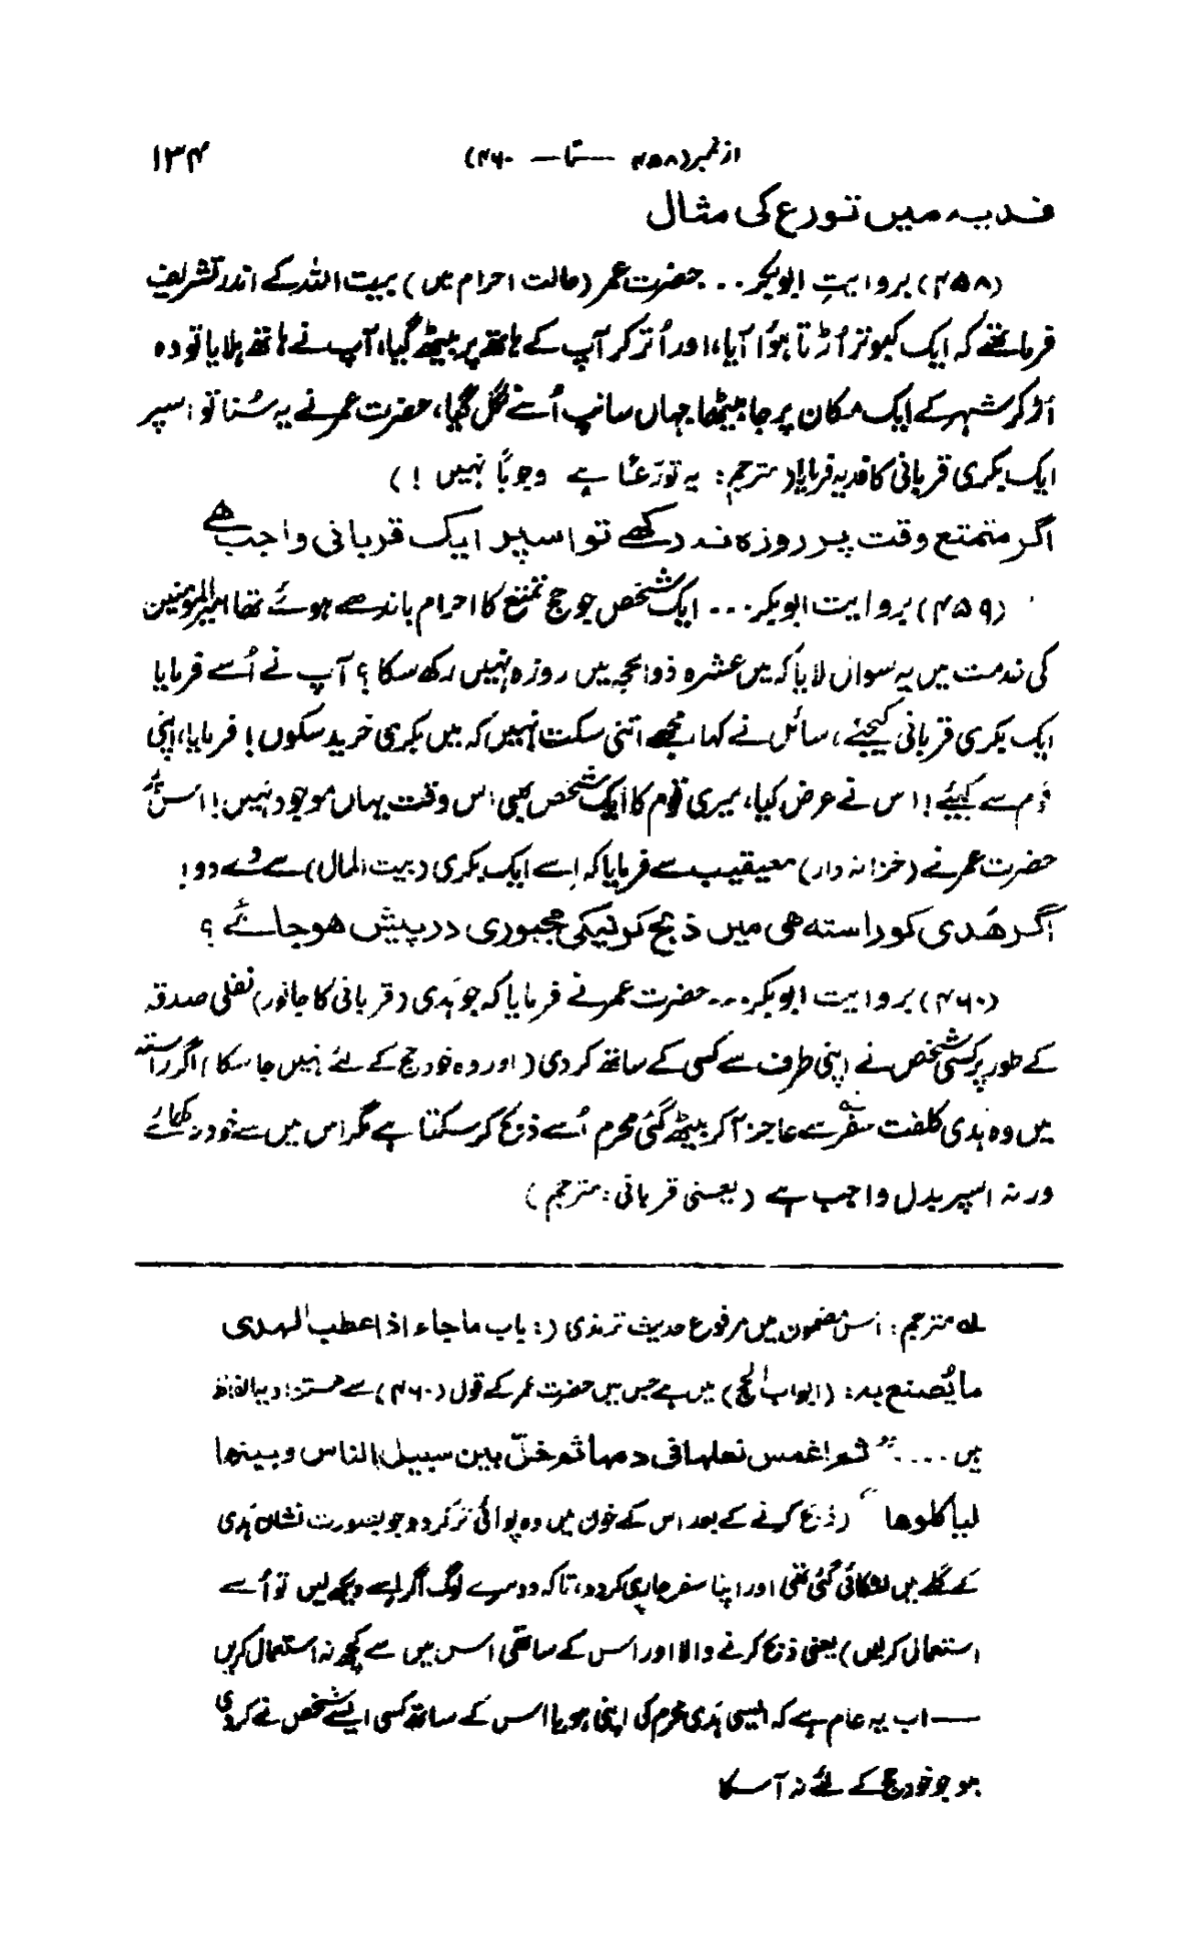 ۱۳۴ از نمبر (۴۵۸ — تا — ۴۶۰)
فدیہ میں تورع کی مثال
(۴۵۸) بروایتِ ابوبکر ... حضرت عمر (حالت احرام میں) بیت اللہ کے اندر تشریف
فرما تھے کہ ایک کبوتر اُڑتا ہوُا آیا، اور اُتر کر آپ کے ہاتھ پر بیٹھ گیا، آپ نے ہاتھ ہلایا تو وہ
اُڑ کر شہر کے ایک مکان پر جا بیٹھا جہاں سانپ اُسے نگل گیا، حضرت عمر نے یہ سُنا تو اسپر
ایک بکری قربانی کا فدیہ فرمایا (مترجم: یہ تورّعًا ہے وجوبًا نہیں!)
اگر متمتع وقت پر روزہ نہ رکھے تو اسپر ایک قربانی واجب ہے
(۴۵۹) بروایت ابوبکر ... ایک شخص جو حج تمتع کا احرام باندھے ہوئے تھا امیرالمؤمنین
کی خدمت میں یہ سوال لایا کہ میں عشرہ ذوالحجہ میں روزہ نہیں رکھ سکا؟ آپ نے اُسے فرمایا
ایک بکری قربانی کیجئے، سائل نے کہا مجھے اتنی سکت نہیں کہ میں بکری خرید سکوں! فرمایا، اپنی
قوم سے کہیئے! اس نے عرض کیا، میری قوم کا ایک شخص بھی اس وقت یہاں موجود نہیں! اس پر
حضرت عمر نے (خزانہ دار) معیقیب سے فرمایا کہ اِسے ایک بکری (بیت المال) سے دے دو!
اگر ھَدی کو راستہ ھی میں ذبح کرنیکی مجبوری درپیش ھوجائے؟
(۴۶۰) بروایت ابوبکر... حضرت عمر نے فرمایا کہ جو ہَدی (قربانی کا جانور) نفلی صدقہ
کے طور پر کسی شخص نے اپنی طرف سے کسی کے ساتھ کر دی (اور وہ خود حج کے لئے نہیں جا سکا) اگر راستہ
میں وہ ہَدی کلفت سفر سے عاجز آ کر بیٹھ گئی محرم اُسے ذبح کر سکتا ہے مگر اس میں سے خود نہ کھائے
ورنہ اسپر بدل واجب ہے (یعنی قربانی: مترجم)
لہ مترجم: اس مضمون میں مرفوع حدیث ترمذی (: باب ماجاء اذا عطب الہدی
مایُصنع بہ: (ابواب الحج) میں ہے جس میں حضرت عمر کے قول (۴۶۰) سے مستزاد یہ الفاظ
ہیں .... ” ثم اغمس نعلھا فی دمھا ثم خلّ بین سبیل الناس وبینھا
لیاکلوھا “ (ذبح کرنے کے بعد اس کے خون میں وہ پوائی تر کر دو جو بصورت نشان ہَدی
کے گلے میں لٹکائی گئی تھی اور اپنا سفر جاری کردو، تاکہ دوسرے لوگ اگر اسے دیکھ لیں تو اُسے
استعمال کریں) یعنی ذبح کرنے والا اور اس کے ساتھی اس میں سے کچھ نہ استعمال کریں
— اب یہ عام ہے کہ ایسی ہَدی محرم کی اپنی ہو یا اس کے ساتھ کسی ایسے شخص نے کر دی
ہو جو خود حج کے لئے نہ آ سکا